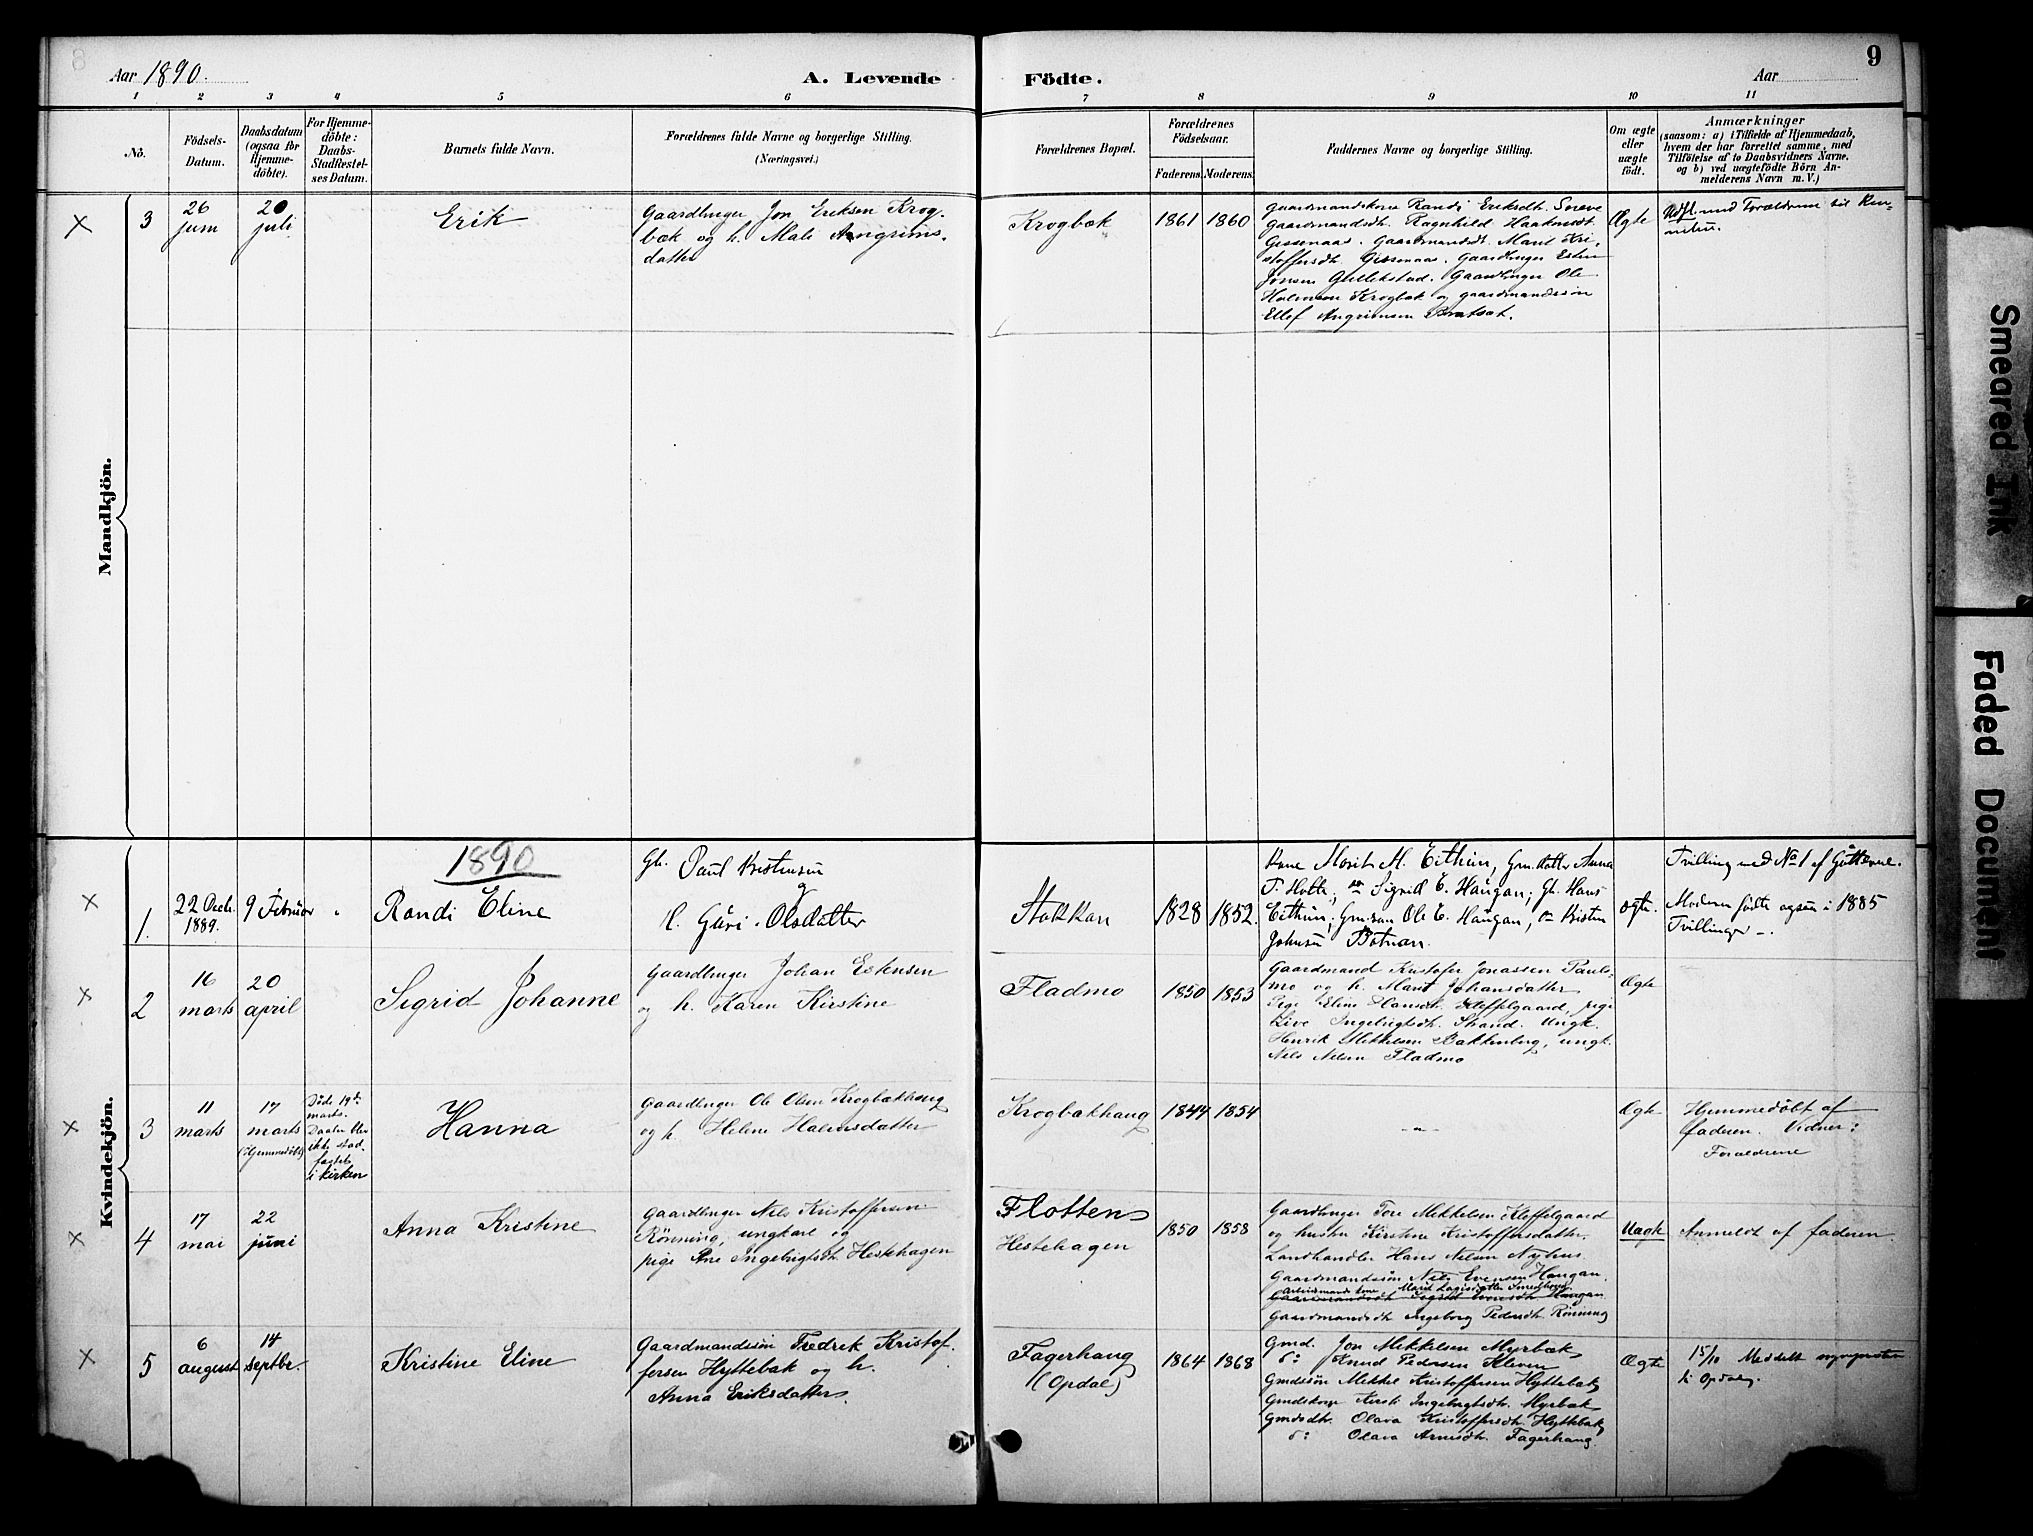 8
Aar 1890.
A. Levende
Födte.
Aar
9
1 2 3 4 5 6 7 8 9 10 11
No.
Födsels-
Datum.
Daabsdatum
(ogsaa for
Hjemme-
döbte).
For Hjemme-
döbte:
Daabs-
Stadfestel-
ses Datum.
Barnets fulde Navn.
Forældrenes fulde Navne og borgerlige Stilling.
(Næringsvei.)
Forældrenes Bopæl.
Forældrenes
Födselsaar.
Faderens. Moderens.
Faddernes Navne og borgerlige Stilling.
Om ægte
eller
uægte
födt.
Anmærkninger
(saasom: a) i Tilfælde af Hjemmedaab,
hvem der har forrettet samme, med
Tilföielse af to Daabsvidners Navne.
og b) ved uægtefödte Börn An-
melderens Navn m. V.)
Mandkjön.
3
26
juni
20
juli
Erik
Gaardbruger Jon Eriksen Krog-
bæk og h. Mali Arngrims-
datter
Krogbæk
1861 1860
Gaardmandskone Randi Eriksdt. Snøve
Gaardmandsdt. Ragnhild Haakensdt.
Gissenaas. Gaardmandsdt. Marit Kri-
stoffersdt. Gissenaas. Gaardbruger Esten
Jonsen Gullikstad. Gaardbruger Ole
Halvorsen Krogbæk og gaardmandssön
Ellef Angrimsen Bratset.
Ægte
Udfl. med Forældrene til Ren-
nebu.
Kvindekjön.
1890
1.
22 Decb.
1889.
9 Februar
Randi Eline
Gb. Paul Kristensen
og
H. Guri Olsdatter
Stokkan
1828 1852.
Kone Marit M. Eithun, Gm.datter Anna
T. Holte, Sigrid E. Haugan; Gb. Hans
Eithun; Gm.søn Ole E. Haugan, Kristen
Johnsen Botnan.
Ægte.
Tvilling med No 1 af Gutterne.
Moderen födte ogsaa i 1885
Tvillinger -.
2
16
marts
20
april
Sigrid Johanne
Gaardbruger Johan Estensen
og h. Karen Kirstine
Fladmo
1850 1853
Gaardmand Kristofer Jonassen Pauls-
mo og h. Marit Johansdatter
Pige Eline Hansdt. Kleffelgaard, pige
Live Ingebrigtsdt. Strand. Ungk.
Henrik Mikkelsen Bakkenberg, ungk.
Nils Nilsen Fladmo
Ægte
3
11
marts
17
marts
(Hjemmedöbt)
Döde 19de
marts.
Daaben blev
ikke stad-
fæstet
i kirken
Hanna
Gaardbruger Ole Olsen Krogbækhaug
og h. Helene Halvorsdatter
Krogbækhaug
1844 1854
- " -
Ægte
Hjemmedöbt af
faderen. Vidner:
Forældrene
4
17
mai
22
juni
Anna Kristine
Gaardbruger Nils Kristoffersen
Rönning, ungkarl og
pige Ane Ingebrigtsdt. Hestehagen
Flotten
Hestehagen
1850 1858
Gaardbruger Tore Mikkelsen Kleffelgaard
og hustru Kirstine Kristoffersdatter.
Landhandler Hans Nilsen Nyhus
Gaardmandssön Nils Evensen Haugan.
Arbeidsmands kone Marit Larsdatter Smedhaug
Gaardmandsdt. Sigrid Evensdt. Haugan.
Gaardmandsdt. Ingeborg Pedersdt. Rönning
Uægte
Anmeldt af faderen.
5
6
august
14
septbr.
Kristine Eline
Gaardmandssön Fredrik Kristof-
fersen Hyttebæk og h.
Anna Eriksdatter.
Fagerhaug
(Opdal)
1864 1868
Gmd. Jon Mikkelsen Myrbæk
do Knud Pedersen Kleven
Gmdssön Mikkel Kristoffersen Hyttebæk
Gmdskone Kirsti Ingebrigtsdt. Myrbæk
Gmdsdt. Olava Kristoffersdt. Hyttebæk
do Olava Arnesdt. Fagerhaug.
Ægte
15/10 Meddelt sognepresten
til Opdal.
Smeared Ink
Faded Document